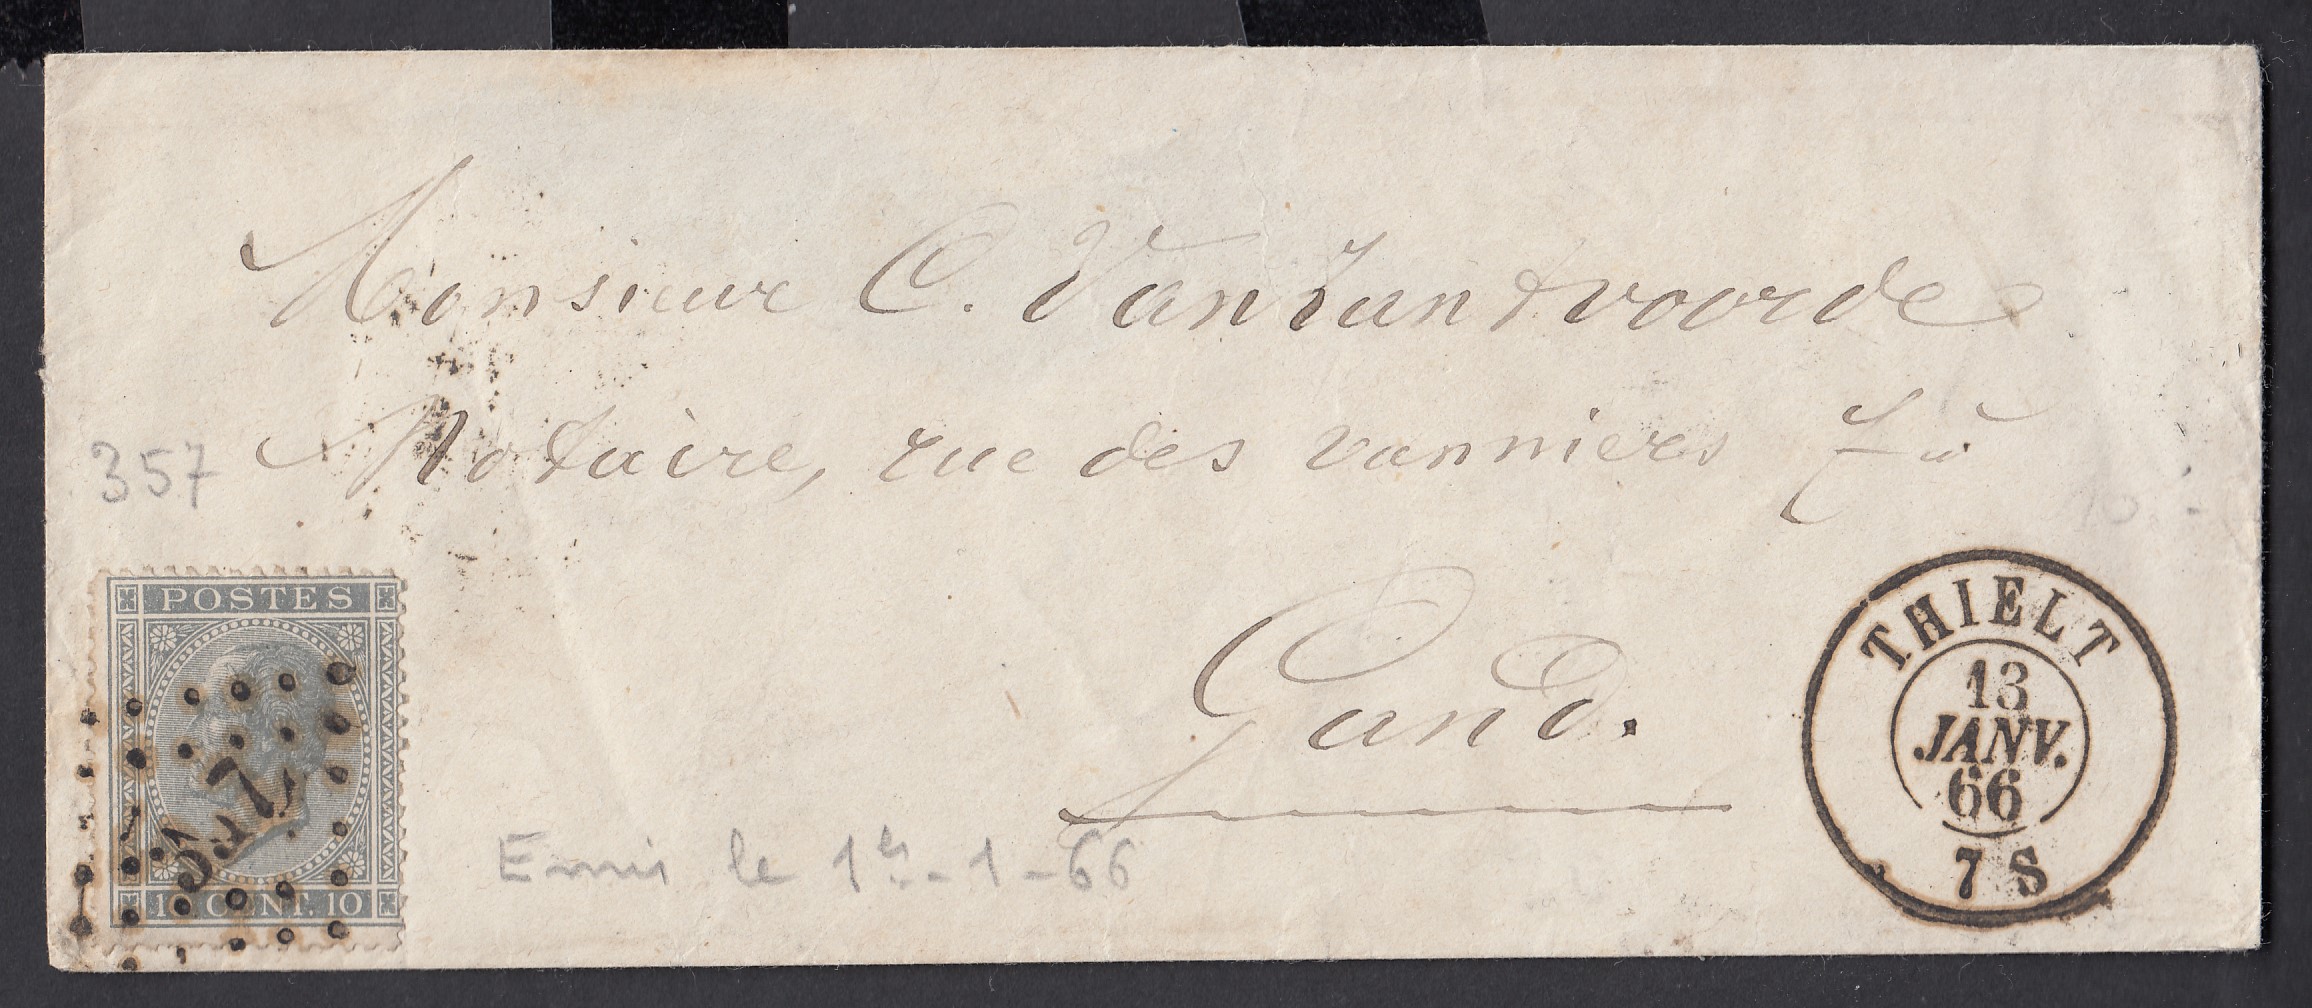 Monsieur C. VanZantvoorde
Notaire, rue des vanniers
Gand.
357
POSTES
357
10 CENT. 10
Emis le 1er-1-66
THIELT
13
JANV.
66
7 S